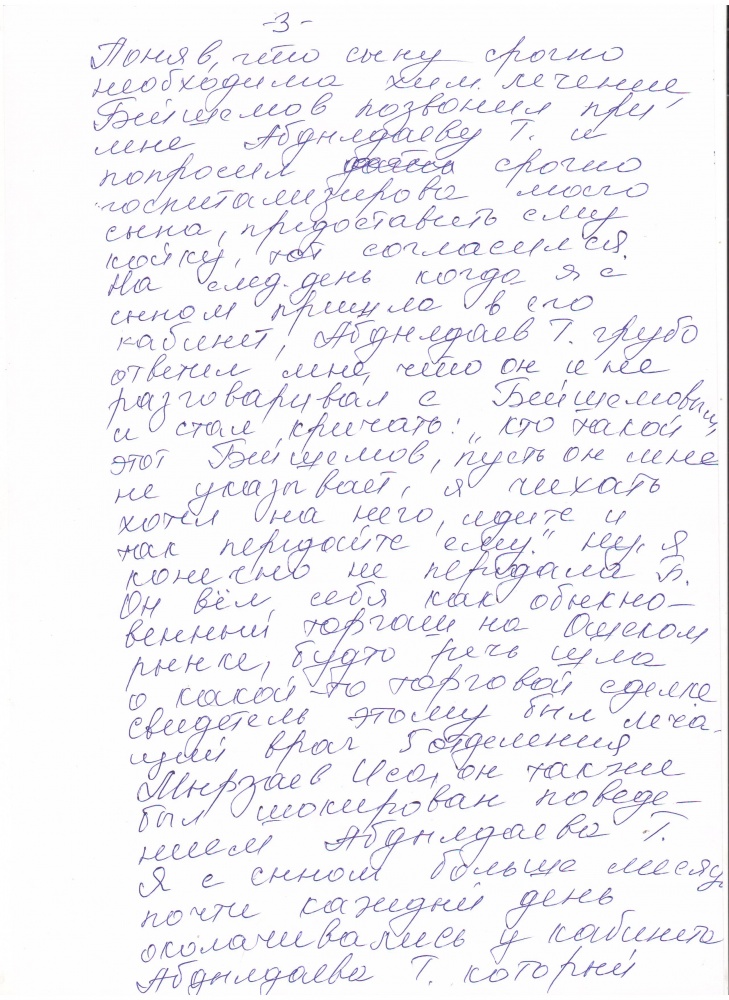 -3-
Поняв, что сыну срочно
необходима хим. лечение,
Бейшемов позвонил при
мне Абдылдаеву Т. и
попросил срочно
госпитализирова моего
сына, предоставить ему
койку, тот согласился.
На след. день когда я с
сыном пришла в его
кабинет, Абдылдаев Т. грубо
ответил мне, что он и не
разговаривал с Бейшемовым,
и стал кричать: „кто такой
этот Бейшемов, пусть он мне
не указывает, я чихать
хотел на него, идите и
так передайте ему." ну, я
конечно не передала Б.
Он вёл себя как обыкно-
венный торгаш на Ошском
рынке, будто речь шла
о какой-то торговой сделке
свидетель этому был леча-
щий врач 5 отделения
Мырзаев Иса, он также
был шокирован поведе-
нием Абдылдаева Т.
Я с сыном больше месяц
почти каждый день
околачивались у кабинета
Абдылдаева Т. который